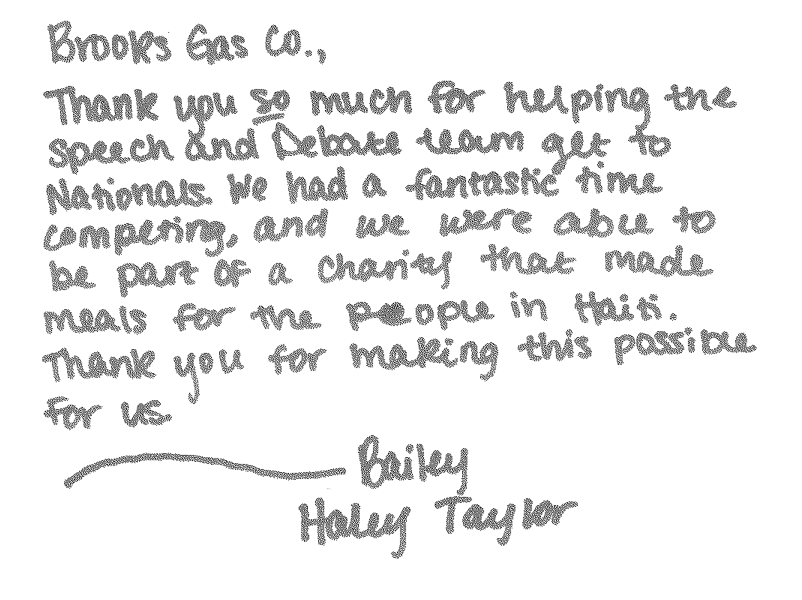 Brooks Gas Co.,
Thank you so much for helping the
speech and Debate team get to
Nationals. We had a fantastic time
competing, and we were able to
be part of a charity that made
meals for the people in Haiti.
Thank you for making this possible
for us.
Bailey
Haley Taylor